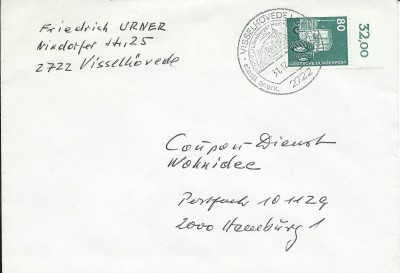 Friedrich URNER
Nindorfer Str. 25
2722 Visselhövede
VISSELHÖVEDE 1
staatl. anerk.
31.12
2722
80
DEUTSCHE BUNDESPOST
32,00
Coupon-Dienst
Wohnidee
Postfach 10 11 29
2000 Hamburg 1